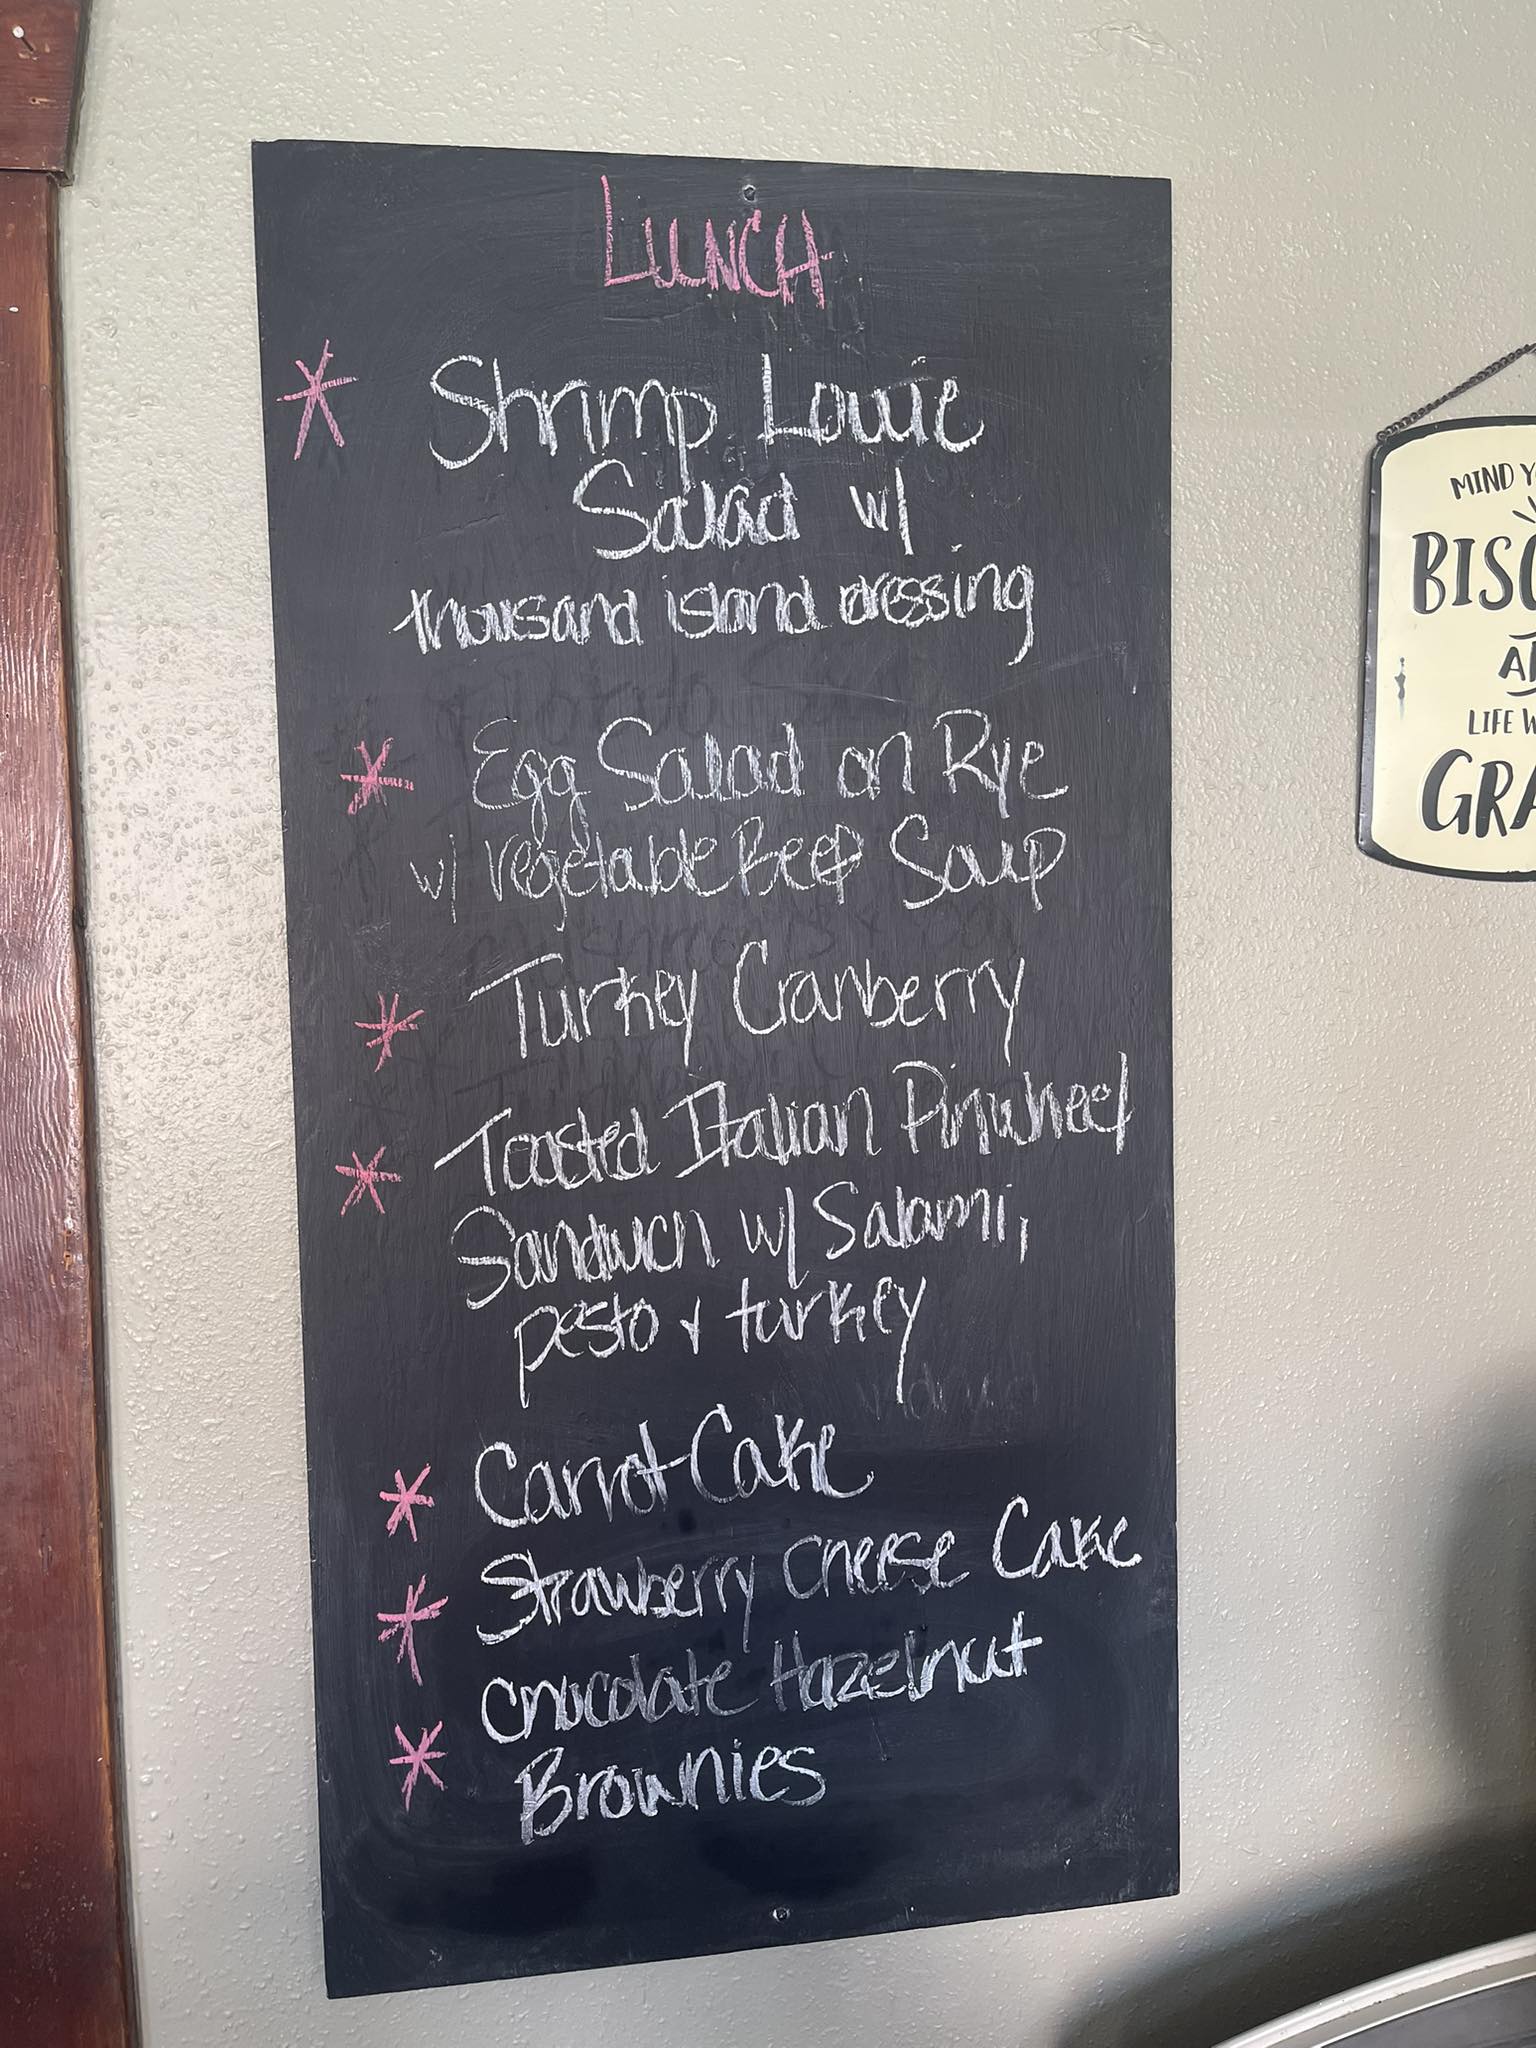 LUNCH
* Shrimp Louie
Salad w/
thousand island dressing
* Egg Salad on Rye
w/ Vegetable Beef Soup
* Turkey Cranberry
* Toasted Italian Pinwheel
Sandwich w/ Salami,
pesto & turkey
* Carrot Cake
* Strawberry Cheese Cake
* Chocolate Hazelnut
Brownies
MIND
LIFE